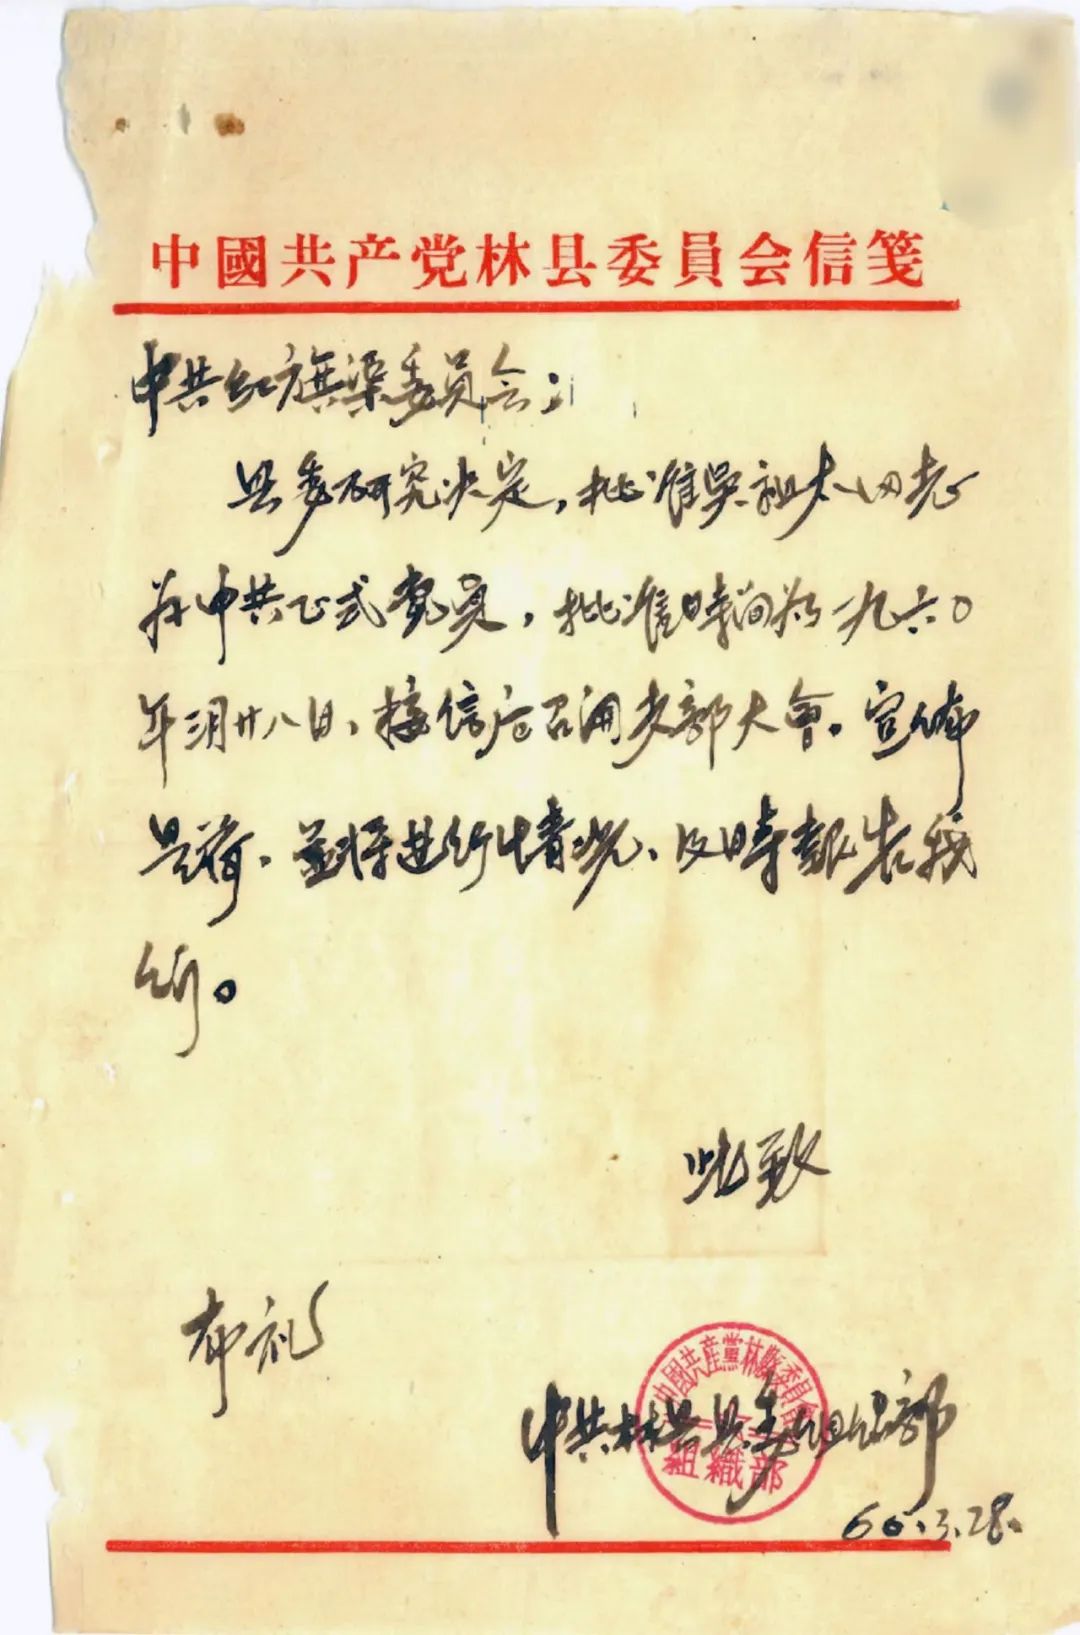 中國共产党林县委員会信箋
中共红旗渠委员会：
县委研究决定，批准吴祖太同志
为中共正式党员，批准時间为一九六〇
年三月廿八日，接信后召开支部大會，宣佈
是荷，並将进行情况，及時報告我
们。
此致
布礼
中國共産黨林縣委員會
組織部
中共林县县委组织部
60.3.28.